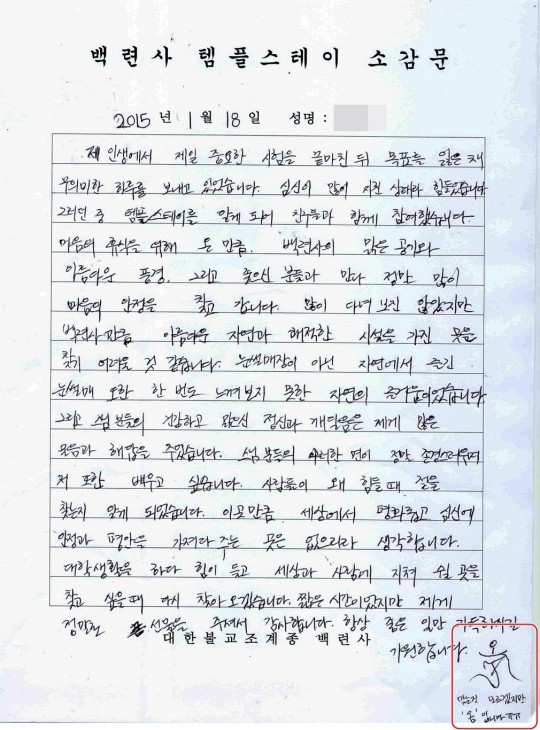 백련사 템플스테이 소감문
2015 년 1 월 18 일 성명 :
제 인생에서 제일 중요한 시험을 끝마친 뒤 목표를 잃은 채
무의미한 하루를 보내고 있었습니다. 심신이 많이 지친 상태라 힘들었습니다.
그러던 중 템플스테이를 알게 되어 친구들과 함께 참여했습니다.
마음의 휴식을 위해 온 만큼, 백련사의 맑은 공기와
아름다운 풍경, 그리고 좋으신 분들과 만나 정말 많이
마음의 안정을 찾고 갑니다. 많이 다녀 보진 않았지만
백련사 만큼 아름다운 자연과 쾌적한 시설을 가진 곳을
찾기 어려울 것 같습니다. 눈썰매장이 아닌 자연에서 즐긴
눈썰매 또한 한 번도 느껴보지 못한 자연의 즐거움이었습니다.
그리고 스님 분들의 건강하고 맑으신 정신과 깨달음은 제게 많은
물음과 해답을 주었습니다. 스님 분들의 이러한 면이 정말 존경스러우며
저 또한 배우고 싶습니다. 사람들이 왜 힘들 때 절을
찾는지 알게 되었습니다. 이곳만큼 세상에서 평화롭고 심신에
안정과 평안을 가져다 주는 곳은 없으리라 생각합니다.
대학생활을 하다 힘이 들고 세상과 사람에 지쳐 쉴 곳을
찾고 싶을 때 다시 찾아 오겠습니다. 짧은 시간이었지만 제게
선물을 주셔서 감사합니다. 항상 좋은 일만 가득하시길
대한불교조계종 백련사
기원합니다.
모르겠지만
'옴' 입니다 ㅠㅠ